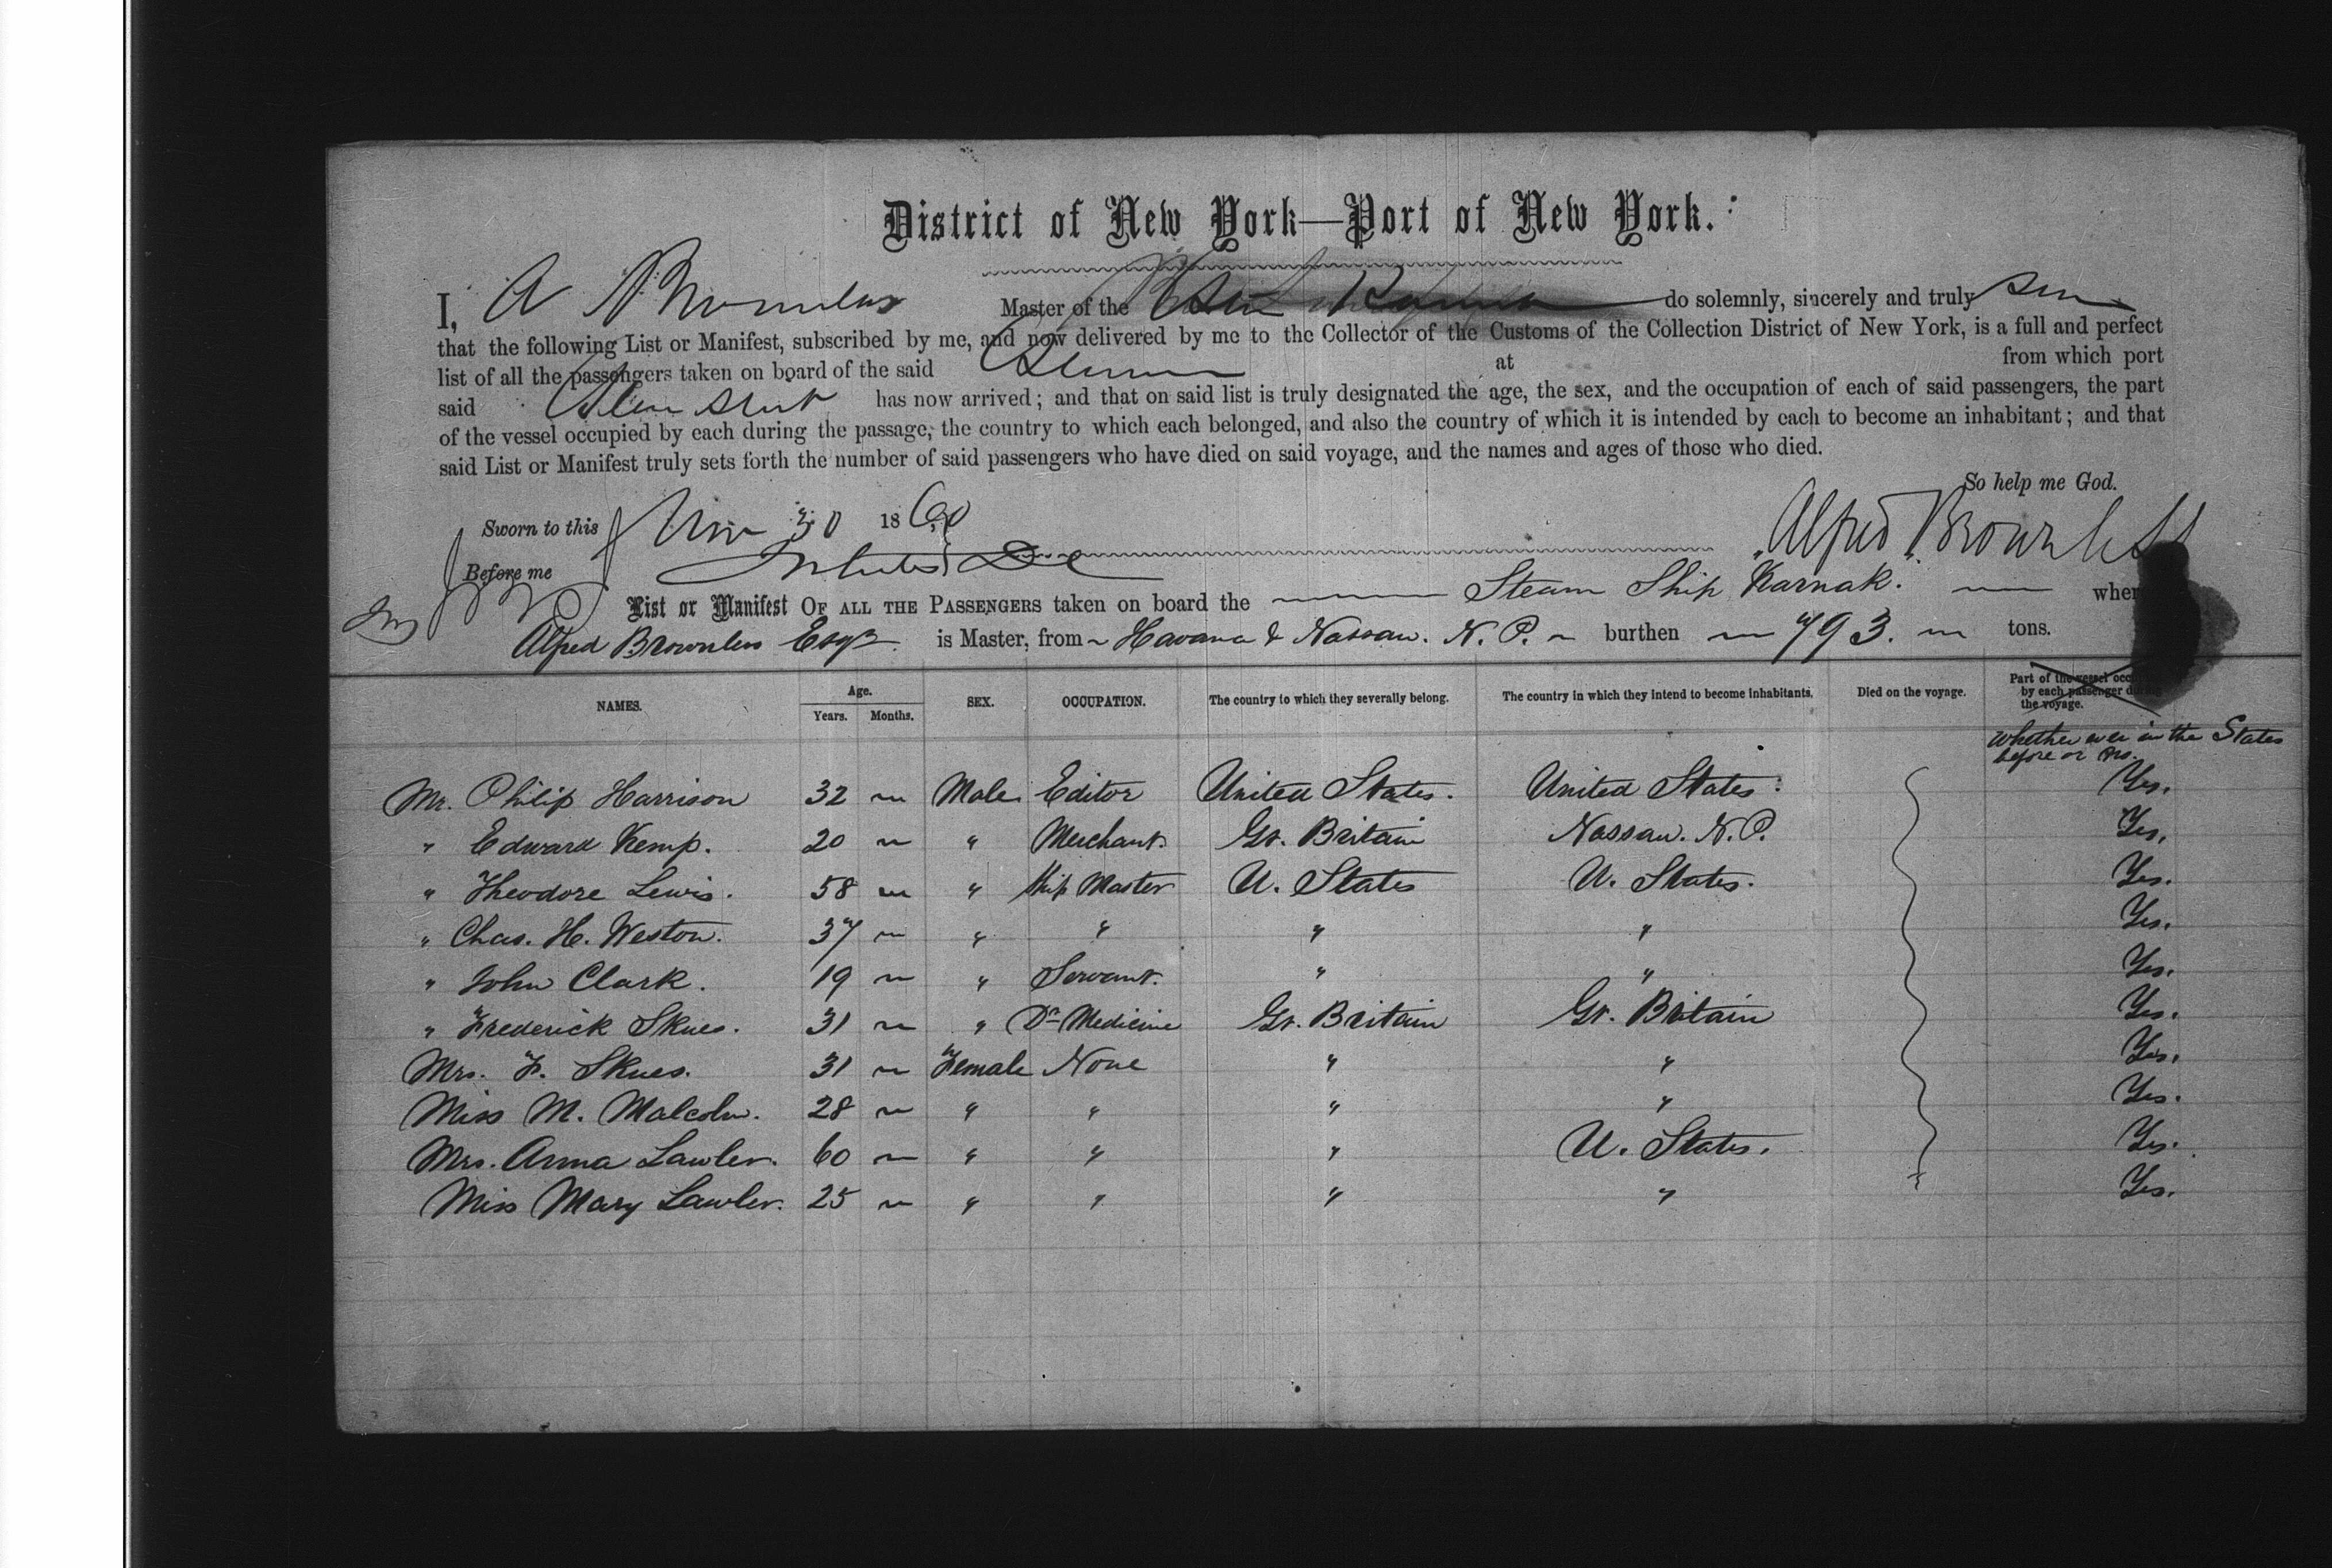 District of New York—Port of New York.
I, A Brownless Master of the do solemnly, sincerely and truly
that the following List or Manifest, subscribed by me, and now delivered by me to the Collector of the Customs of the Collection District of New York, is a full and perfect
list of all the passengers taken on board of the said at from which port
said has now arrived; and that on said list is truly designated the age, the sex, and the occupation of each of said passengers, the part
of the vessel occupied by each during the passage, the country to which each belonged, and also the country of which it is intended by each to become an inhabitant; and that
said List or Manifest truly sets forth the number of said passengers who have died on said voyage, and the names and ages of those who died.
So help me God.
Sworn to this Nov 30 1860
Alfred Brownless
Before me
List or Manifest OF ALL THE PASSENGERS taken on board the Steam Ship Karnak. wher
Alfred Brownless Esqr. is Master, from Havana & Nassau. N. P. burthen 793. tons.
NAMES. Age. Years. Months. SEX. OCCUPATION. The country to which they severally belong. The country in which they intend to become inhabitants. Died on the voyage. Part of the vessel occ by each passenger during the voyage.
Whether ever in the States
before or no.
Mr. Philip Harrison 32 ~ Male Editor United States. United States. Yes.
" Edward Kemp. 20 ~ " Merchant. Gt. Britain Nassau. N. P. Yes.
" Theodore Lewis. 58 ~ " Ship Master U. States U. States. Yes.
" Chas. H. Weston. 37 ~ " " " " Yes.
" John Clark. 19 ~ " Servant. " " Yes.
" Frederick Skues. 31 ~ " Dr. Medicine Gt. Britain Gt. Britain Yes.
Mrs. F. Skues. 31 ~ Female None " " Yes.
Miss M. Malcolm. 28 ~ " " " " Yes.
Mrs. Anna Lawler. 60 ~ " " " U. States. Yes.
Miss Mary Lawler. 25 ~ " " " " Yes.